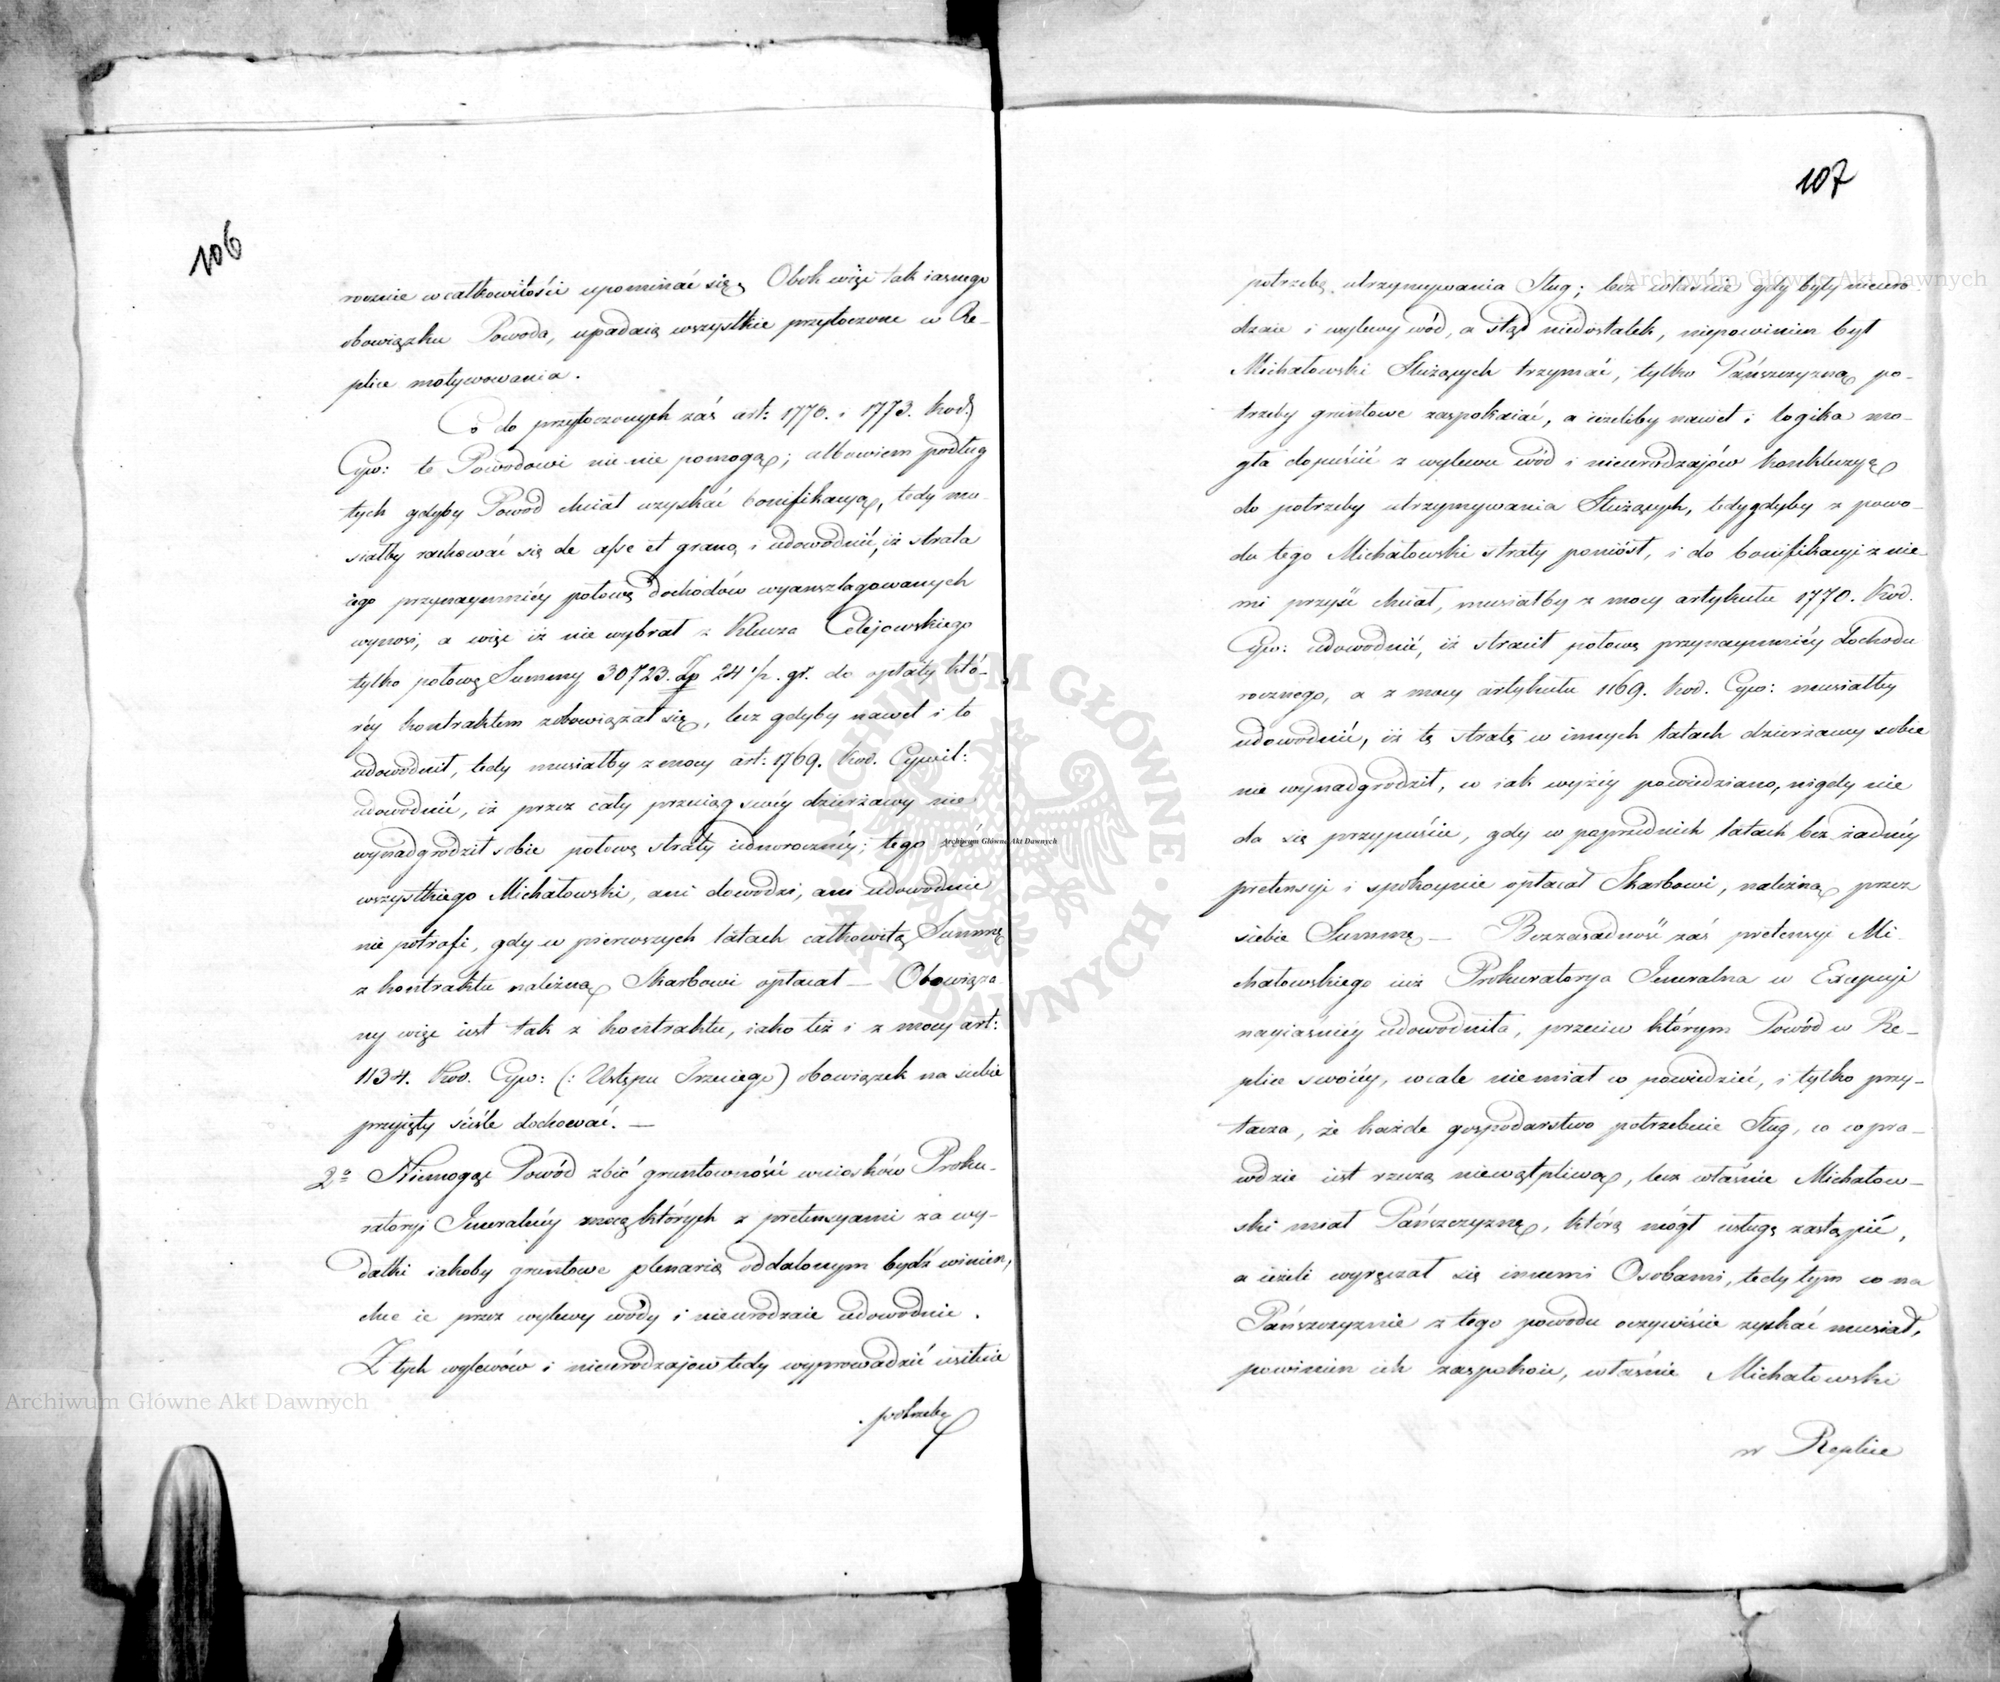 106
rocznie w całkowitości upominać się. Obok więc tak iasnego
obowiązku Powoda, upadaią wszystkie przytoczone w Re-
plice motywowania.
Co do przytoczonych zaś art: 1770. i 1773. Kod.
Cyw: te Powodowi nic nie pomogą; albowiem podług
tych gdyby Powód chciał uzyskać bonifikacyą, tedy mu-
siałby rachować się de asse et grano, i udowodnić, iż strata
iego przynaymniéy połowę dochodów wyanszlagowanych
wynosi, a więc iż nie wybrał z Klucza Celejowskiego
tylko połowę Summy 30723. Zp 24 1/2. gr. do opłaty któ-
réy kontraktem zobowiązał się, lecz gdyby nawet i to
udowodnił, tedy musiałby z mocy art: 1769. Kod. Cywil:
udowodnić, iż przez cały przeciąg swéy dzierżawy nie
wynadgrodził sobie połowę straty iednorocznéy; tego
wszystkiego Michałowski, ani dowodzi, ani udowodnić
nie potrafi, gdy w pierwszych latach całkowitą Summę
z kontraktu należną Skarbowi opłacał — Obowiąza-
ny więc iest tak z kontraktu, iako też i z mocy art:
1134. Kod. Cyw: (: Ustępu Trzeciego) obowiązek na siebie
przyięty ściśle dochować. —
2o Niemogąc Powód zbić gruntowność wniosków Proku-
ratoryi Jeneralnéy mocą których z pretensyami za wy-
datki iakoby gruntowe plenarie oddalonym bydź winien,
chce ie przez wylewy wody i nieurodzaie udowodnić.
Z tych wylewów i nieurodzajow tedy wyprowadzić usiłuie
potrzebę
107
potrzebę utrzymywania Sług; lecz właśnie gdy były nieuro-
dzaie i wylewy wód, a stąd niedostatek, niepowinien był
Michałowski Służących trzymać, tylko Pańszczyzną po-
trzeby gruntowe zaspokaiać, a ieżeliby nawet i logika mo-
gła dopuścić z wylewu wód i nieurodzajów konkluzyą
do potrzeby utrzymywania Służących, tedy gdyby z powo-
du tego Michałowski straty poniósł, i do bonifikacyi z nie-
mi przyść chciał, musiałby z mocy artykułu 1770. Kod.
Cyw: udowodnić, iż stracił połowę przynaymniéy dochodu
rocznego, a z mocy artykułu 1169. Kod. Cyw: musiałby
udowodnić, iż tę stratę w innych latach dzierżawy sobie
nie wynadgrodził, co iak wyżéy powiedziano, nigdy nie
da się przypuścić, gdy w poprzednich latach bez żadnéy
pretensyi i spokoynie opłacał Skarbowi, należną przez
siebie Summę — Bezzasadność zaś pretensyi Mi-
chałowskiego iuż Prokuratorya Jeneralna w Excepcyi
nayiaśniéy udowodniła, przeciw którym Powód w Re-
plice swoiéy, wcale nie miał co powiedzieć, i tylko przy-
tacza, że każde gospodarstwo potrzebuie Sług, co co pra-
wdzie iest rzeczą niewątpliwą, lecz właśnie Michałow-
ski miał Pańszczyznę, którą mógł usługę zastąpić,
a ieżeli wyręczał się innemi Osobami, tedy tym co na
Pańszczyznie z tego powodu oczywiście zyskać musiał,
powinien ich zaspokoić, właśnie Michałowski
w Replice
Archiwum Główne Akt Dawnych
Archiwum Główne Akt Dawnych
Archiwum Główne Akt Dawnych
ARCHIWUM GŁÓWNE AKT DAWNYCH